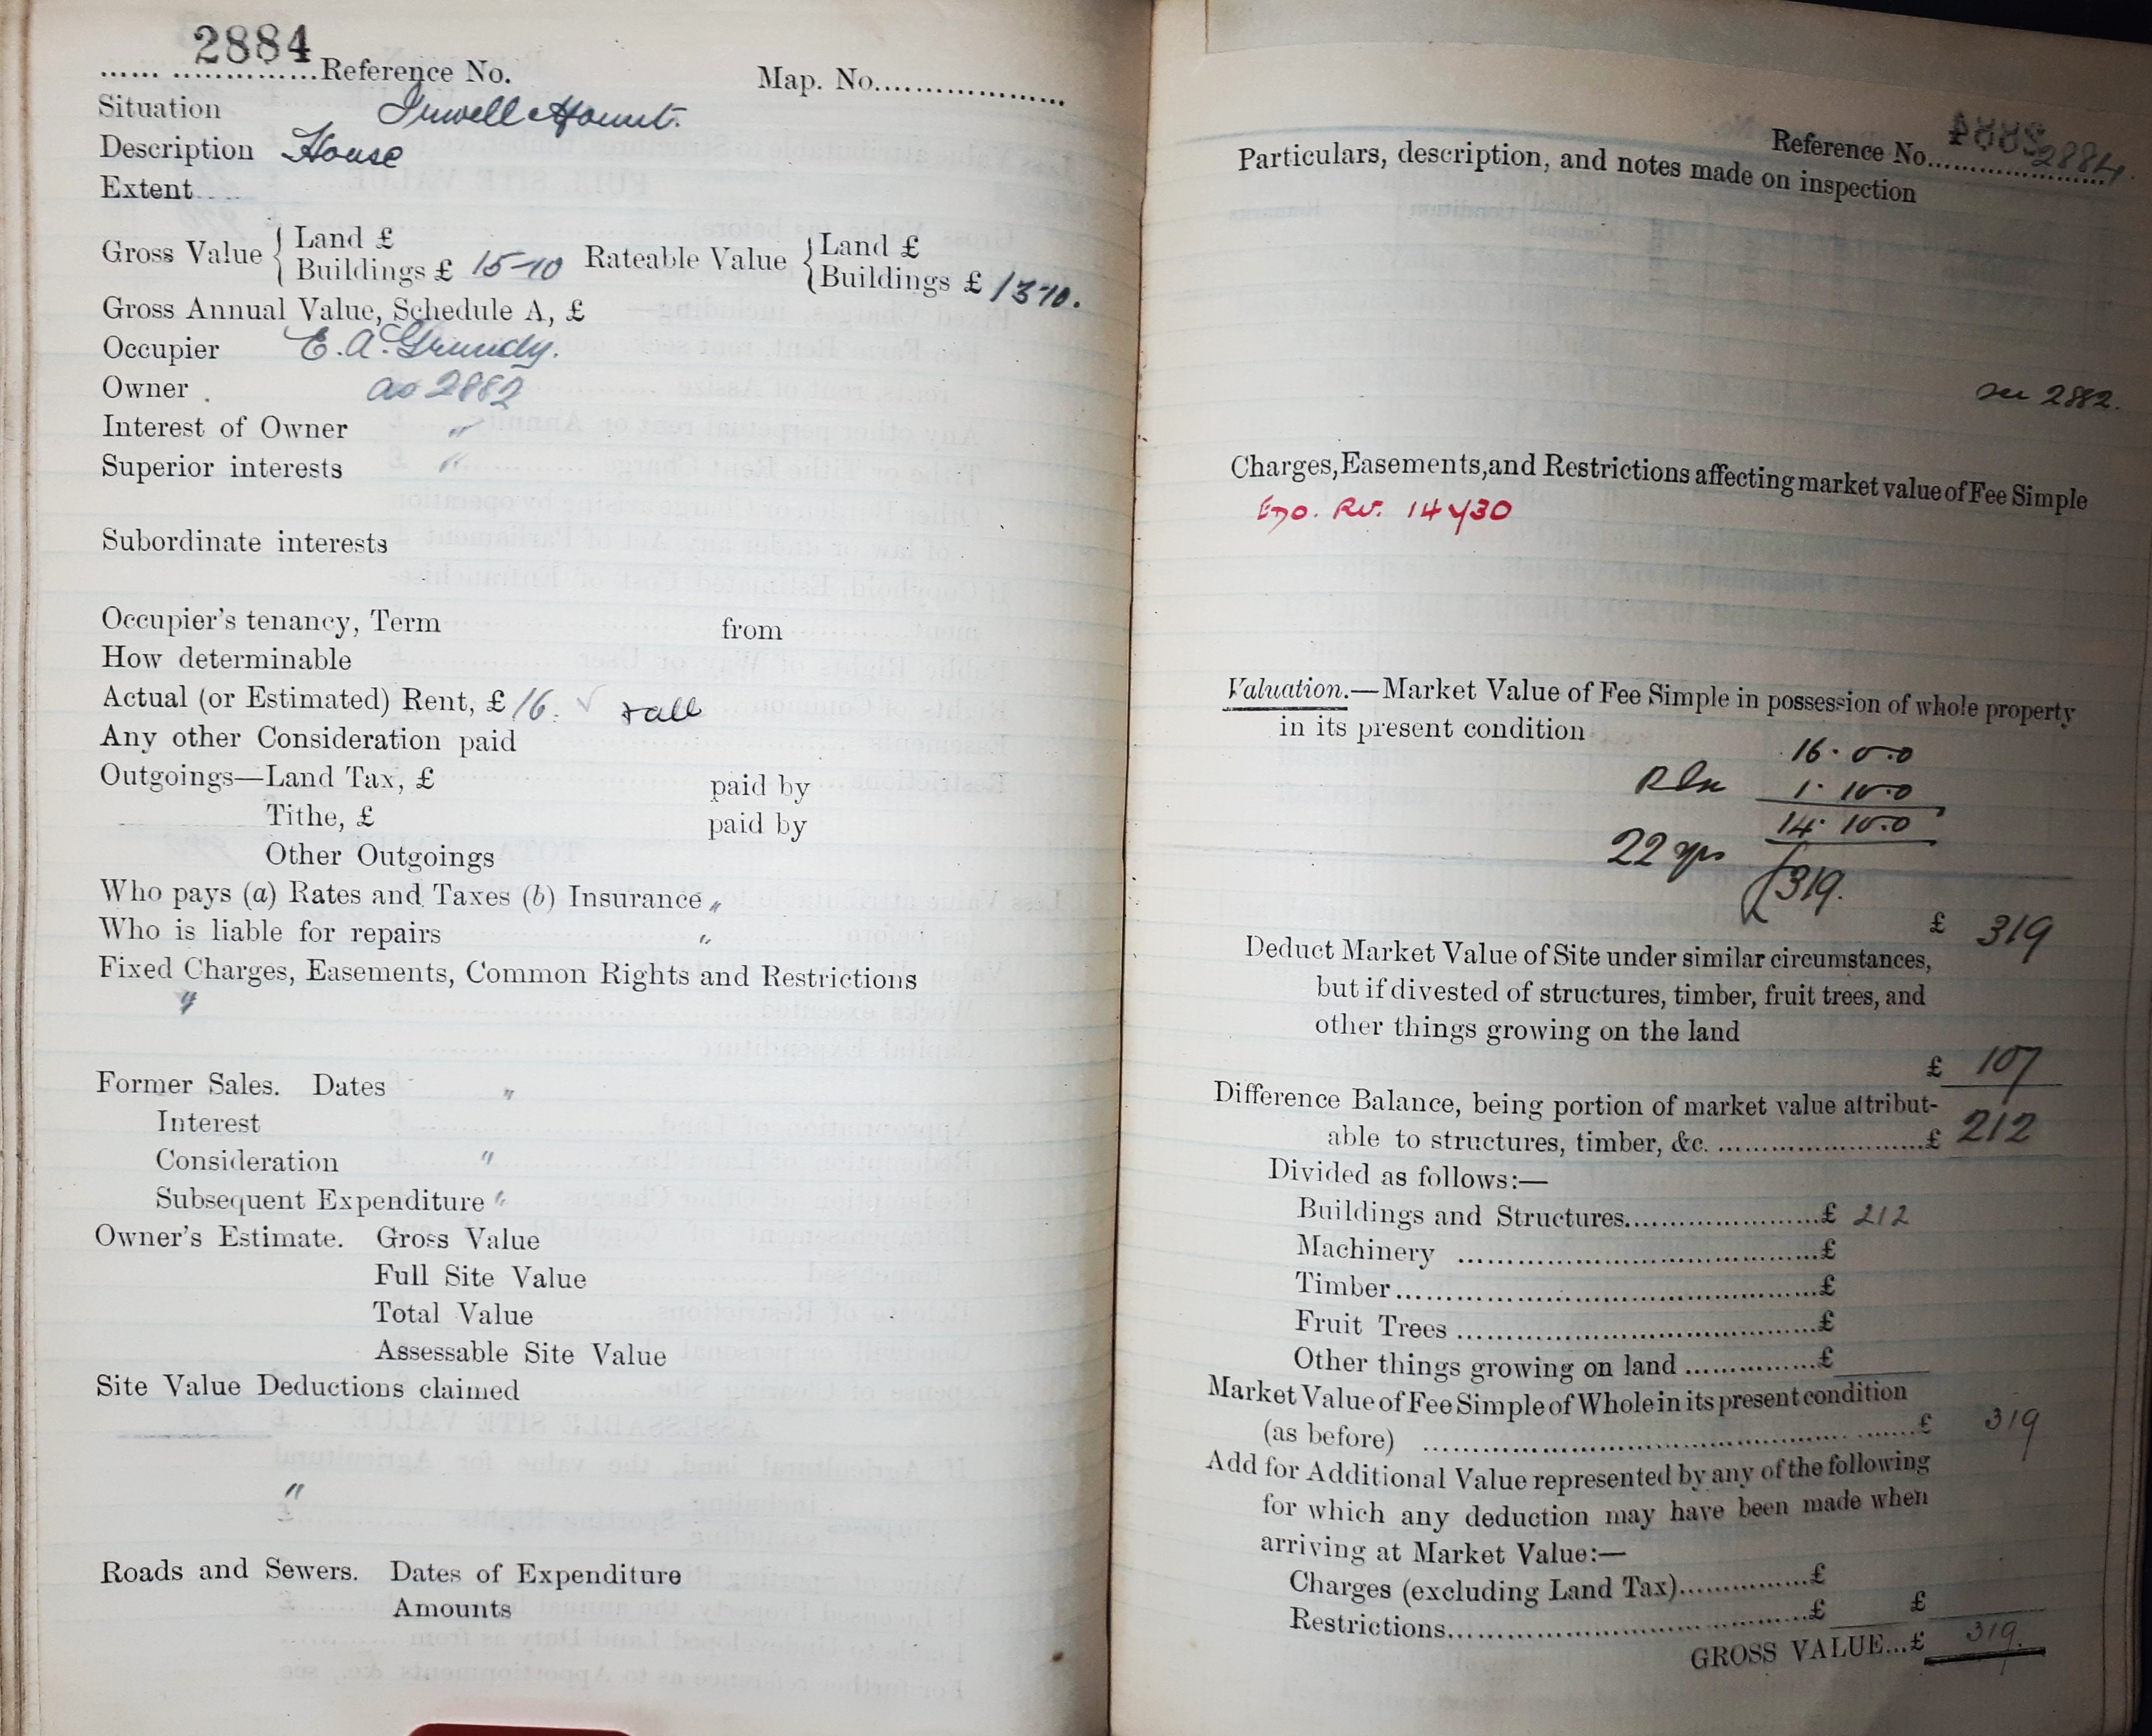 2884
Reference No.
Map. No.
Situation Irwell Mount.
Description House
Extent
Gross Value { Land £
Buildings £ 15-10
Rateable Value { Land £
Buildings £ 13-10.
Gross Annual Value, Schedule A, £
Occupier E. A. Grundy.
Owner as 2882
Interest of Owner "
Superior interests "
Subordinate interests
Occupier's tenancy, Term from
How determinable
Actual (or Estimated) Rent, £ 16. ✓
Any other Consideration paid
Outgoings—Land Tax, £ paid by
Tithe, £ paid by
Other Outgoings
Who pays (a) Rates and Taxes (b) Insurance "
Who is liable for repairs "
Fixed Charges, Easements, Common Rights and Restrictions
"
Former Sales. Dates "
Interest
Consideration "
Subsequent Expenditure "
Owner's Estimate. Gross Value
Full Site Value
Total Value
Assessable Site Value
Site Value Deductions claimed
"
Roads and Sewers. Dates of Expenditure
Amounts
Reference No. 2884.
Particulars, description, and notes made on inspection
see 2882.
Charges, Easements, and Restrictions affecting market value of Fee Simple
Valuation.—Market Value of Fee Simple in possession of whole property
in its present condition
16. 0.0
1. 10.0
14. 10.0
22 yrs
£319.
£ 319
Deduct Market Value of Site under similar circumstances,
but if divested of structures, timber, fruit trees, and
other things growing on the land
£ 107
Difference Balance, being portion of market value attribut-
able to structures, timber, &c. £ 212
Divided as follows:—
Buildings and Structures £ 212
Machinery £
Timber £
Fruit Trees £
Other things growing on land £
Market Value of Fee Simple of Whole in its present condition
(as before) £ 319
Add for Additional Value represented by any of the following
for which any deduction may have been made when
arriving at Market Value:—
Charges (excluding Land Tax) £
Restrictions £ £
GROSS VALUE...£ 319.